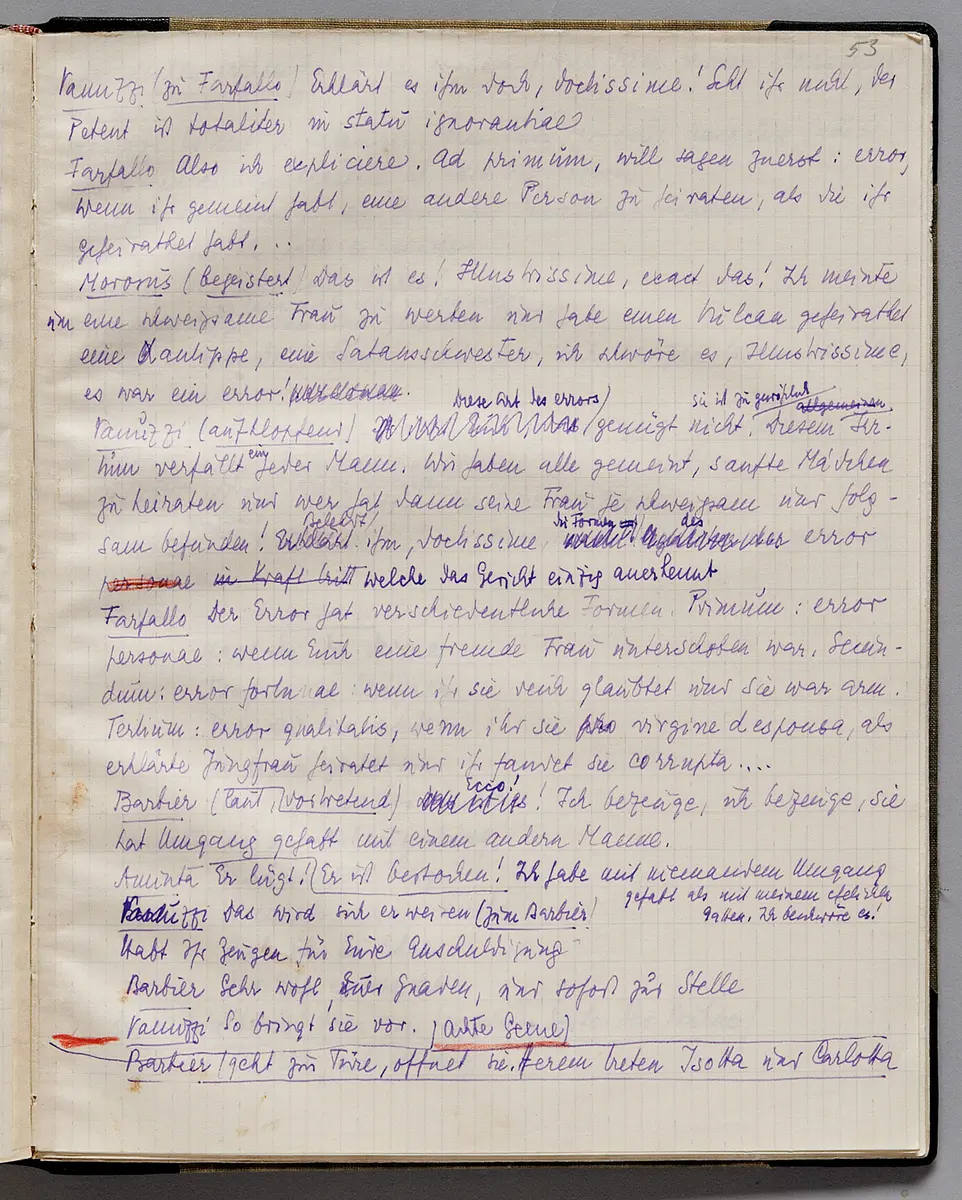 53
Vanuzzi (zu Farfallo) Erklärt es ihm doch, doctissime! Seht ihr nicht, der
Petent ist totaliter in statu ignorantiae
Farfallo Also ich expliciere. Ad primum, will sagen zuerst: error,
wenn ihr gemeint habt, eine andere Person zu heiraten, als die ihr
geheirathet habt. ..
Morosus (begeistert) Das ist es! Illustrissime, exact das! Ich meinte
um eine schweigsame Frau zu werben und habe einen Vulcan geheirathet
eine Xantippe, eine Satansschwester, ich schwöre es, Illustrissime,
es war ein error!
Diese Art des errors sie ist zu gewöhnlich allgemeinen
Vanuzzi (aufklopfend) genügt nicht! Diesem Irr-
tum verfällt ein jeder Mann. Wir haben alle gemeint, sanfte Mädchen
zu heiraten und wer hat dann seine Frau je schweigsam und folg-
sam befunden! Erklärt ihm, doctissime, die Formen des error
personae in Kraft tritt welche das Gericht einzig anerkennt
Farfallo Der Error hat verschiedentliche Formen. Primum: error
personae: wenn Euch eine fremde Frau unterschoben war. Secun-
dum: error fortunae: wenn ihr sie reich glaubtet und sie war arm.
Tertium: error qualitatis, wenn ihr sie pro virgine desponsa, als
erklärte Jungfrau heiratet und ihr fandet sie corrupta....
Barbier (laut, vortretend) Ecco! Ich bezeuge, ich bezeuge, sie
hat Umgang gehabt mit einem andern Manne.
Aminta Er lügt! Er ist bestochen! Ich habe mit niemandem Umgang
gehabt als mit meinem ehelichen
Gatten. Ich beschwöre es!
Vanuzzi Das wird sich erweisen (zum Barbier)
Habt Ihr Zeugen für Eure Anschuldigung
Barbier Sehr wohl, Euer Gnaden, und sofort zur Stelle
Vanuzzi So bringt sie vor. (achte Scene)
Barbier (geht zur Türe, öffnet sie. Herein treten Isotta und Carlotta